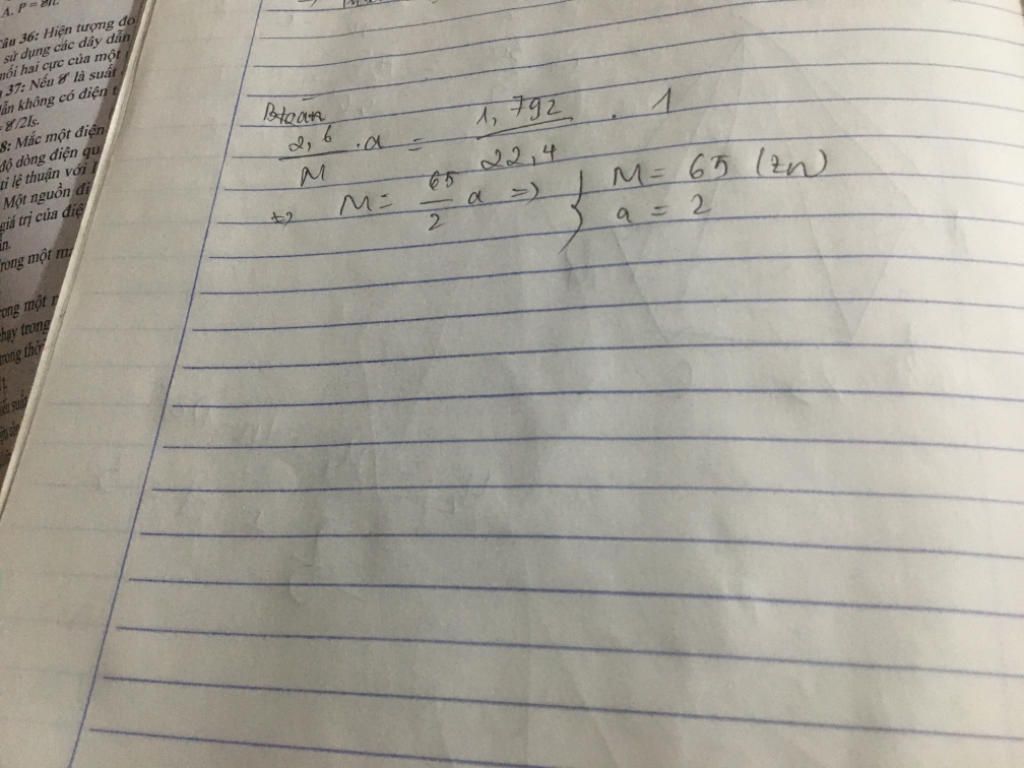 A. P =
Câu 36: Hiện tượng đo
sử dụng các dây dẫn
nối hai cực của một
37: Nếu ℰ là suất
dẫn không có điện t
ℰ/2Is.
8: Mắc một điện
độ dòng điện qu
tỉ lệ thuận với
Một nguồn đi
giá trị của điệ
rong một m
rong một
chạy trong
trong thời
2,6/M . a = 1,792/22,4 . 1
M = 65/2 a => { M = 65 (Zn)
a = 2